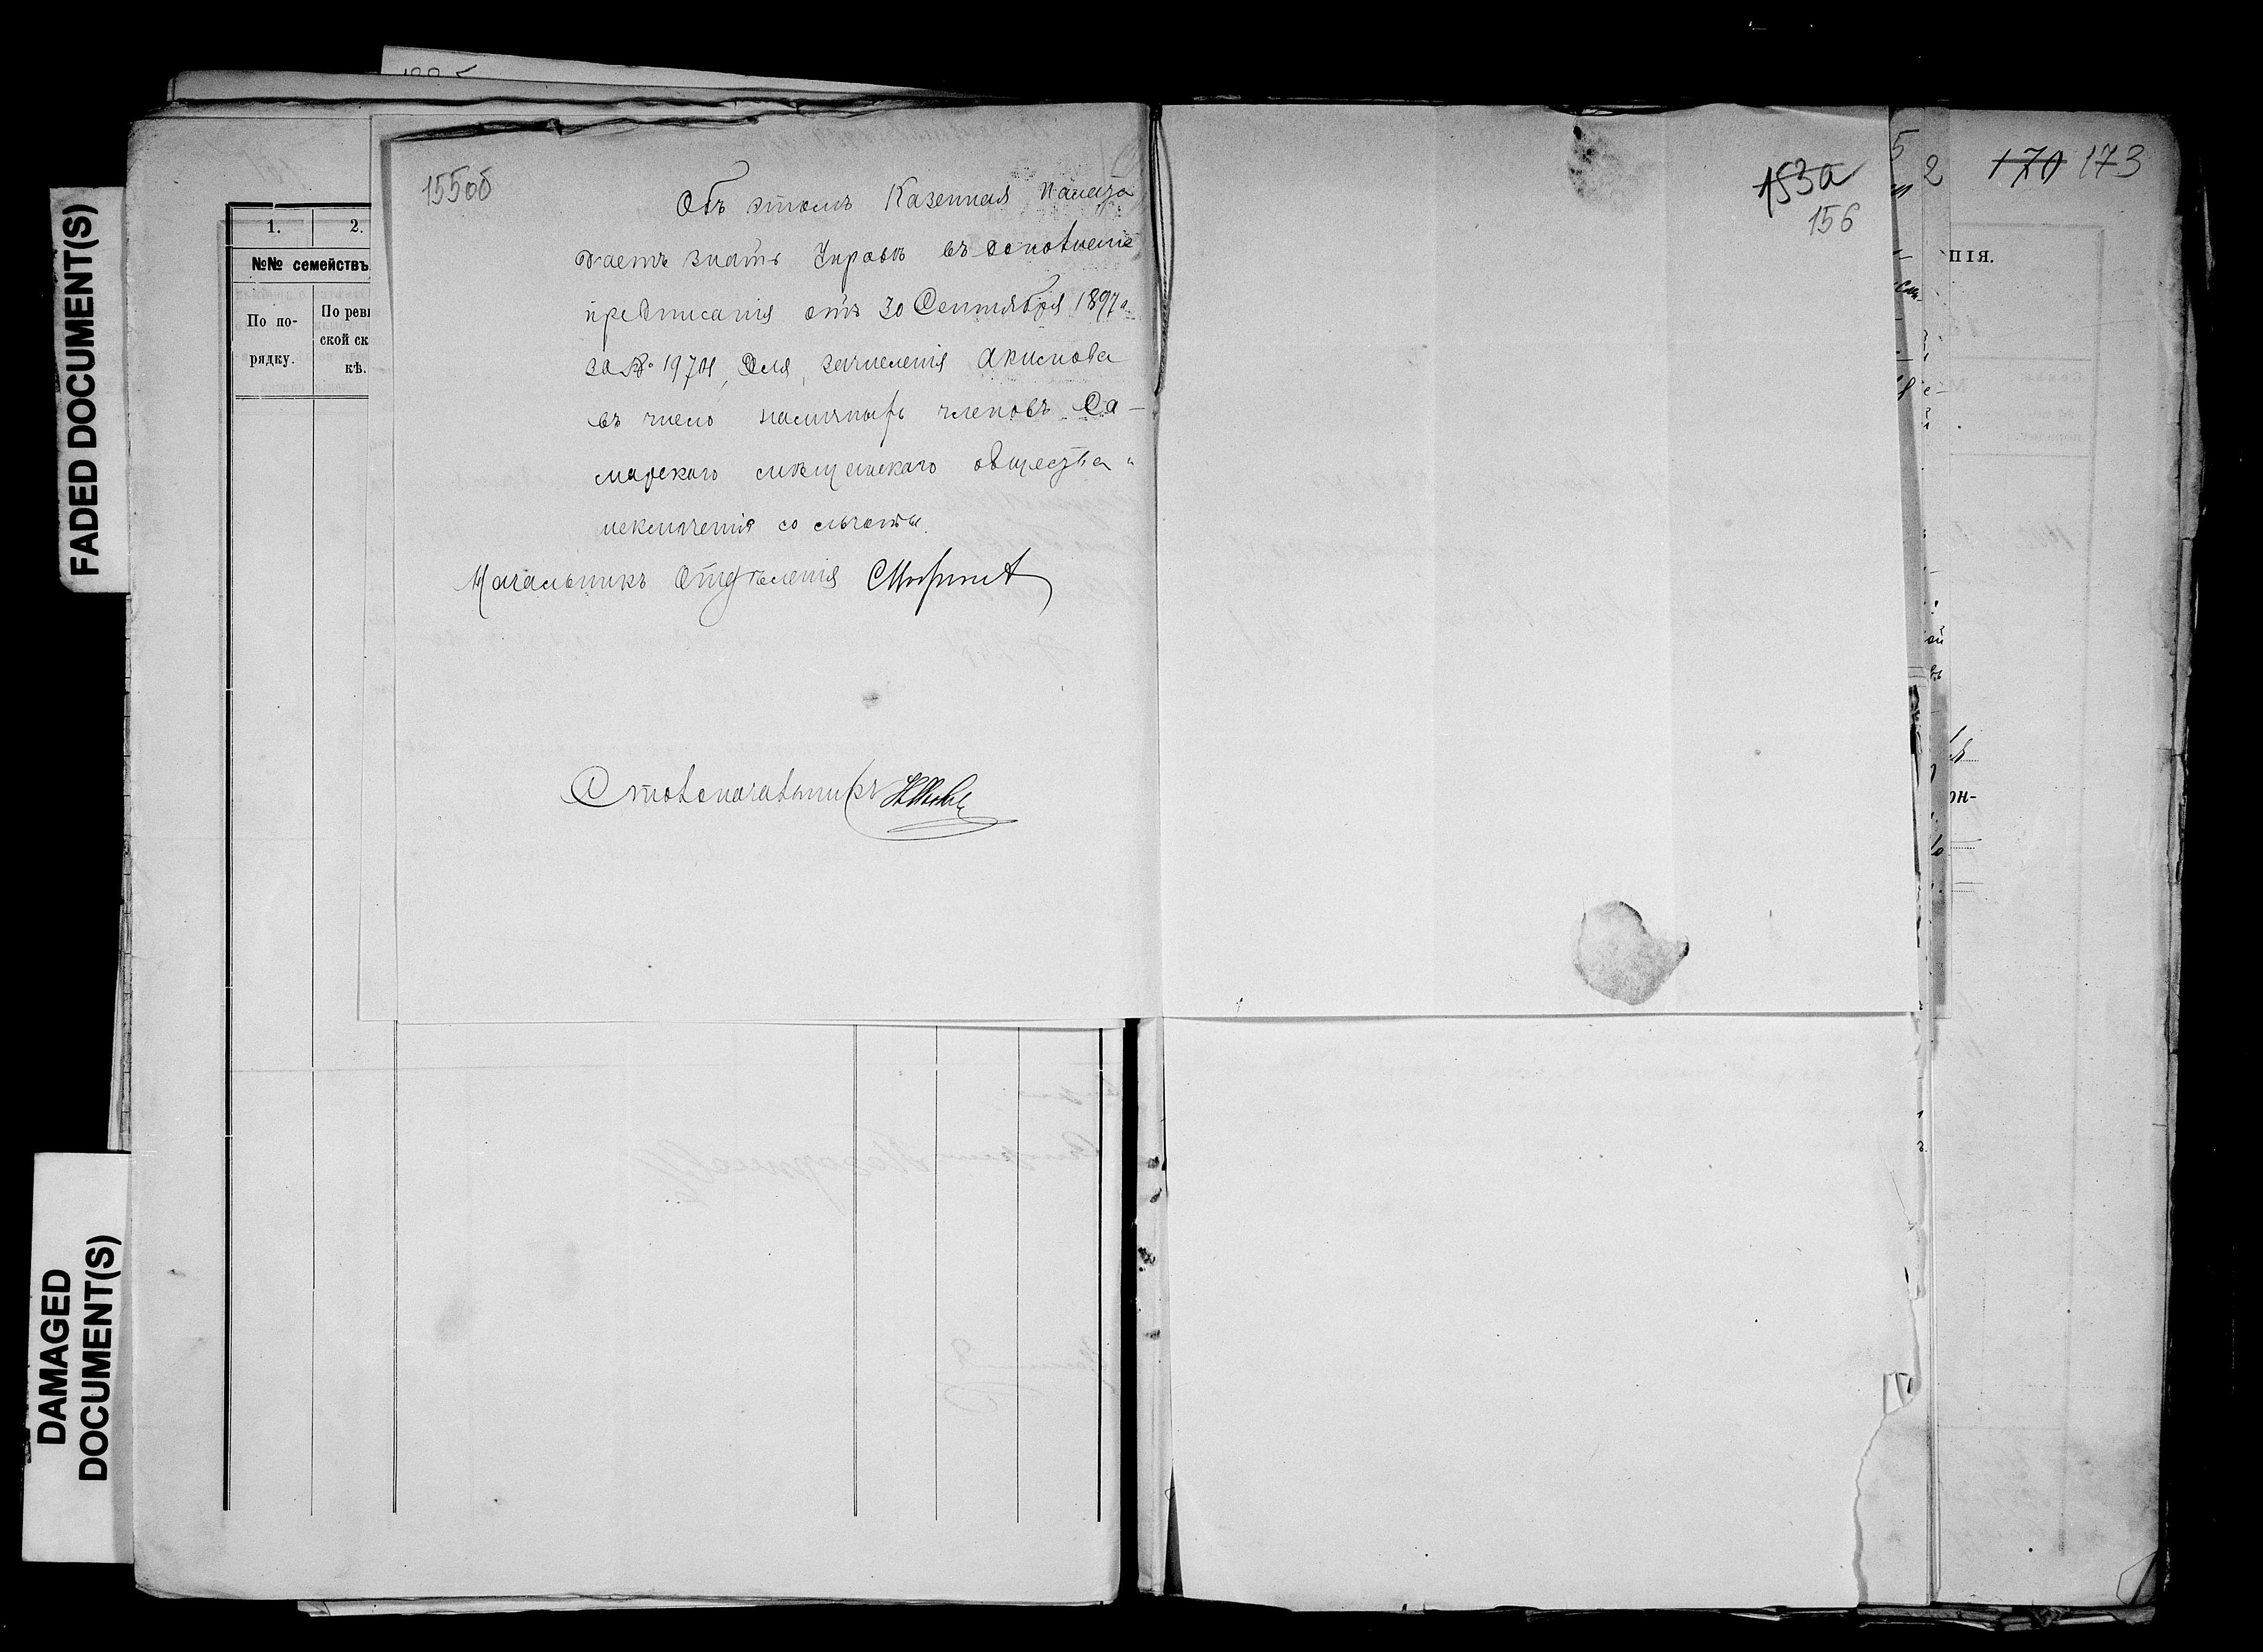 155об
Объ этомъ Казенная Палата
даетъ знать Управѣ въ дополненіе
предписанія отъ 30 Сентября 1897 г.
за № 19701, для зачисленія Акимова
въ число наличныхъ членовъ Са-
марскаго мѣщанскаго общества и
исключенія со льготы.
Начальникъ Отдѣленія
Столоначальникъ
153а
156
2
170 173
ПІЯ.
1. 2.
№№ семействъ
По по-
рядку.
По реви
ской ск
кѣ.
FADED DOCUMENT(S)
DAMAGED
DOCUMENT(S)